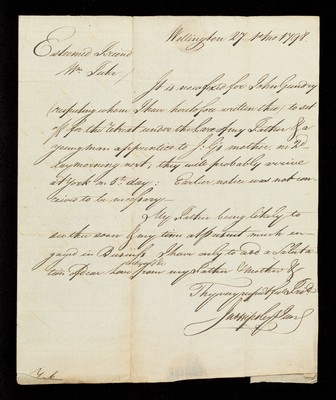 Wellington 27 4 mo 1798
Esteemed Friend
Wm Tuke
It is now fixed for John Gundry
respecting whom I have heretofore written thee, to set
off for the Retreat under the care of my Father & a
young man apprentice to J: G's mother, on 2d
day morning next, they will probably arrive
at York on 5th day: Earlier notice was not con-
ceived to be necessary.
My Father being likely to
see thee soon & my time at present much en-
gaged in Business I have only to add a Saluta
tion of dear love from my Father & Mother &
Thy very respectful Frd
York